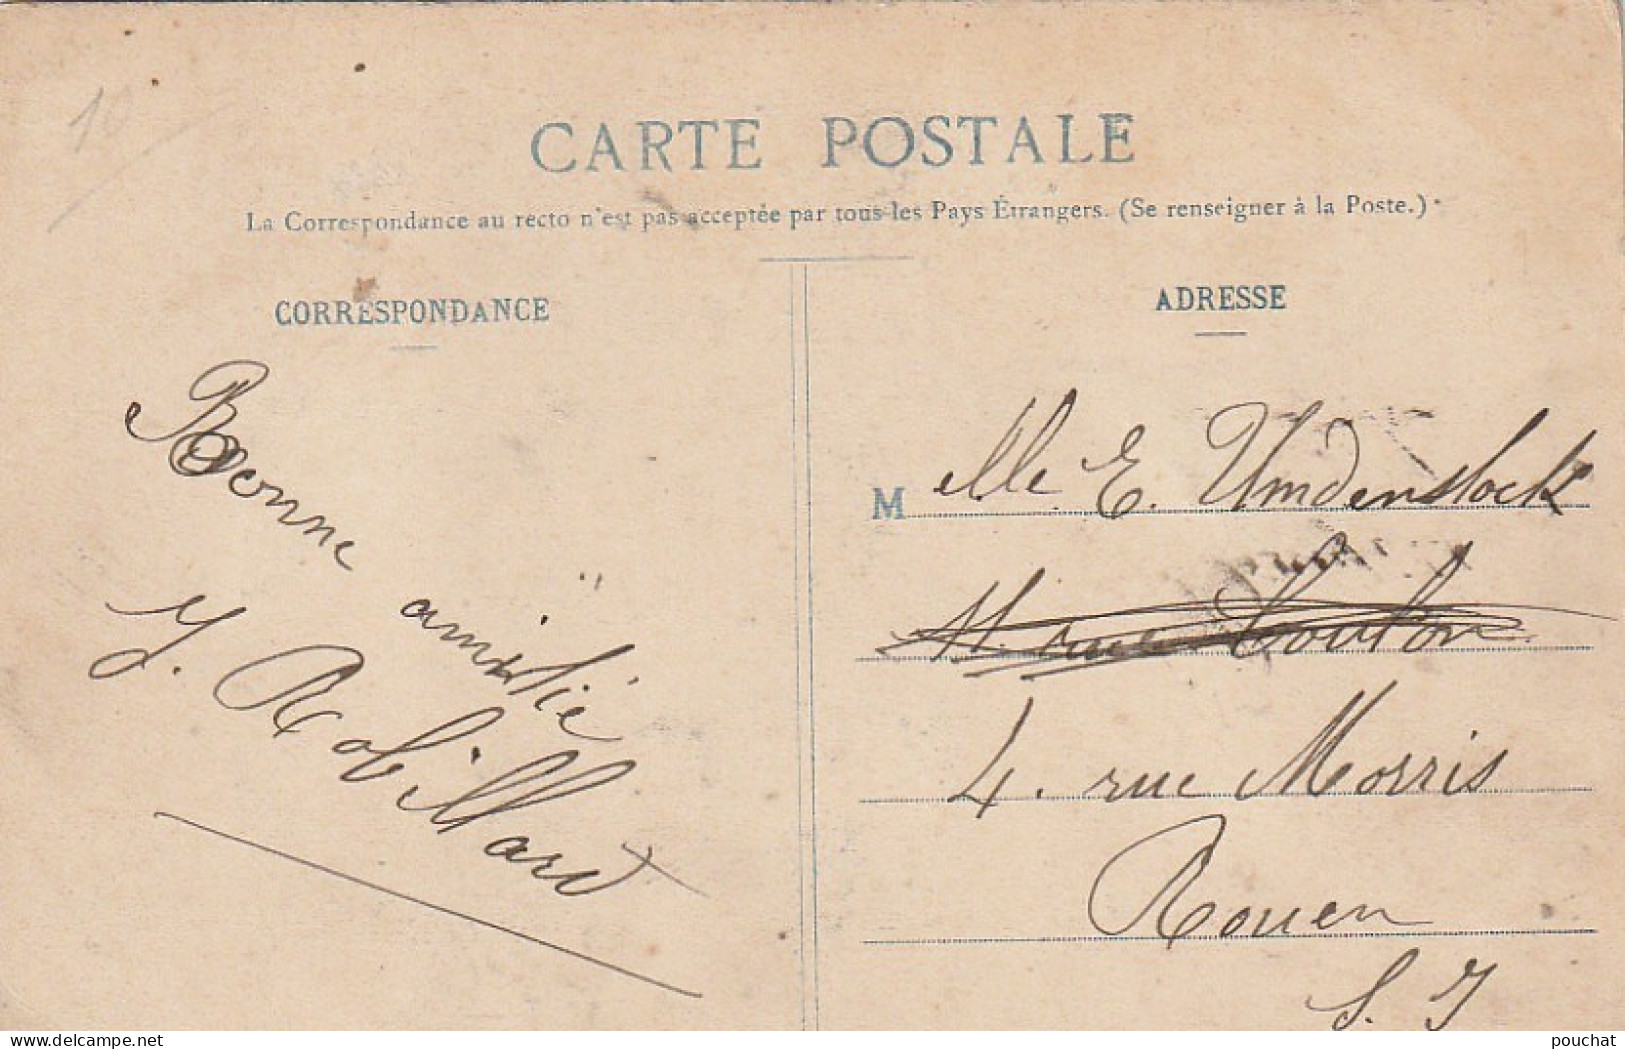 10
CARTE POSTALE
La Correspondance au recto n'est pas acceptée par tous les Pays Étrangers. (Se renseigner à la Poste.)
CORRESPONDANCE
Bonne
amitié
J. Robillard
ADRESSE
Melle E. Umdenstock
11. rue Coulon
4. rue Morris
Rouen
S. I
delcampe.net
pouchat